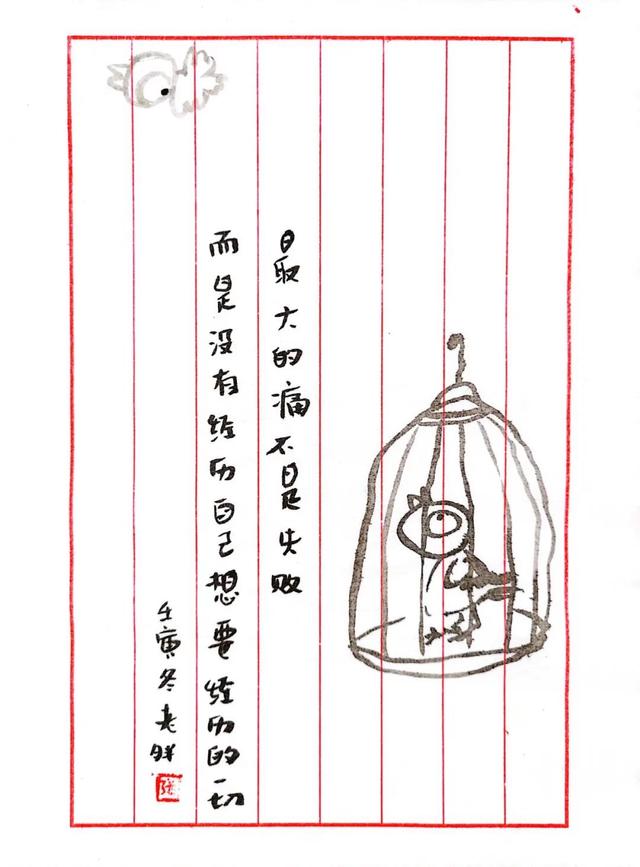 最大的痛不是失败
而是没有经历自己想要经历的一切
壬寅冬老胖